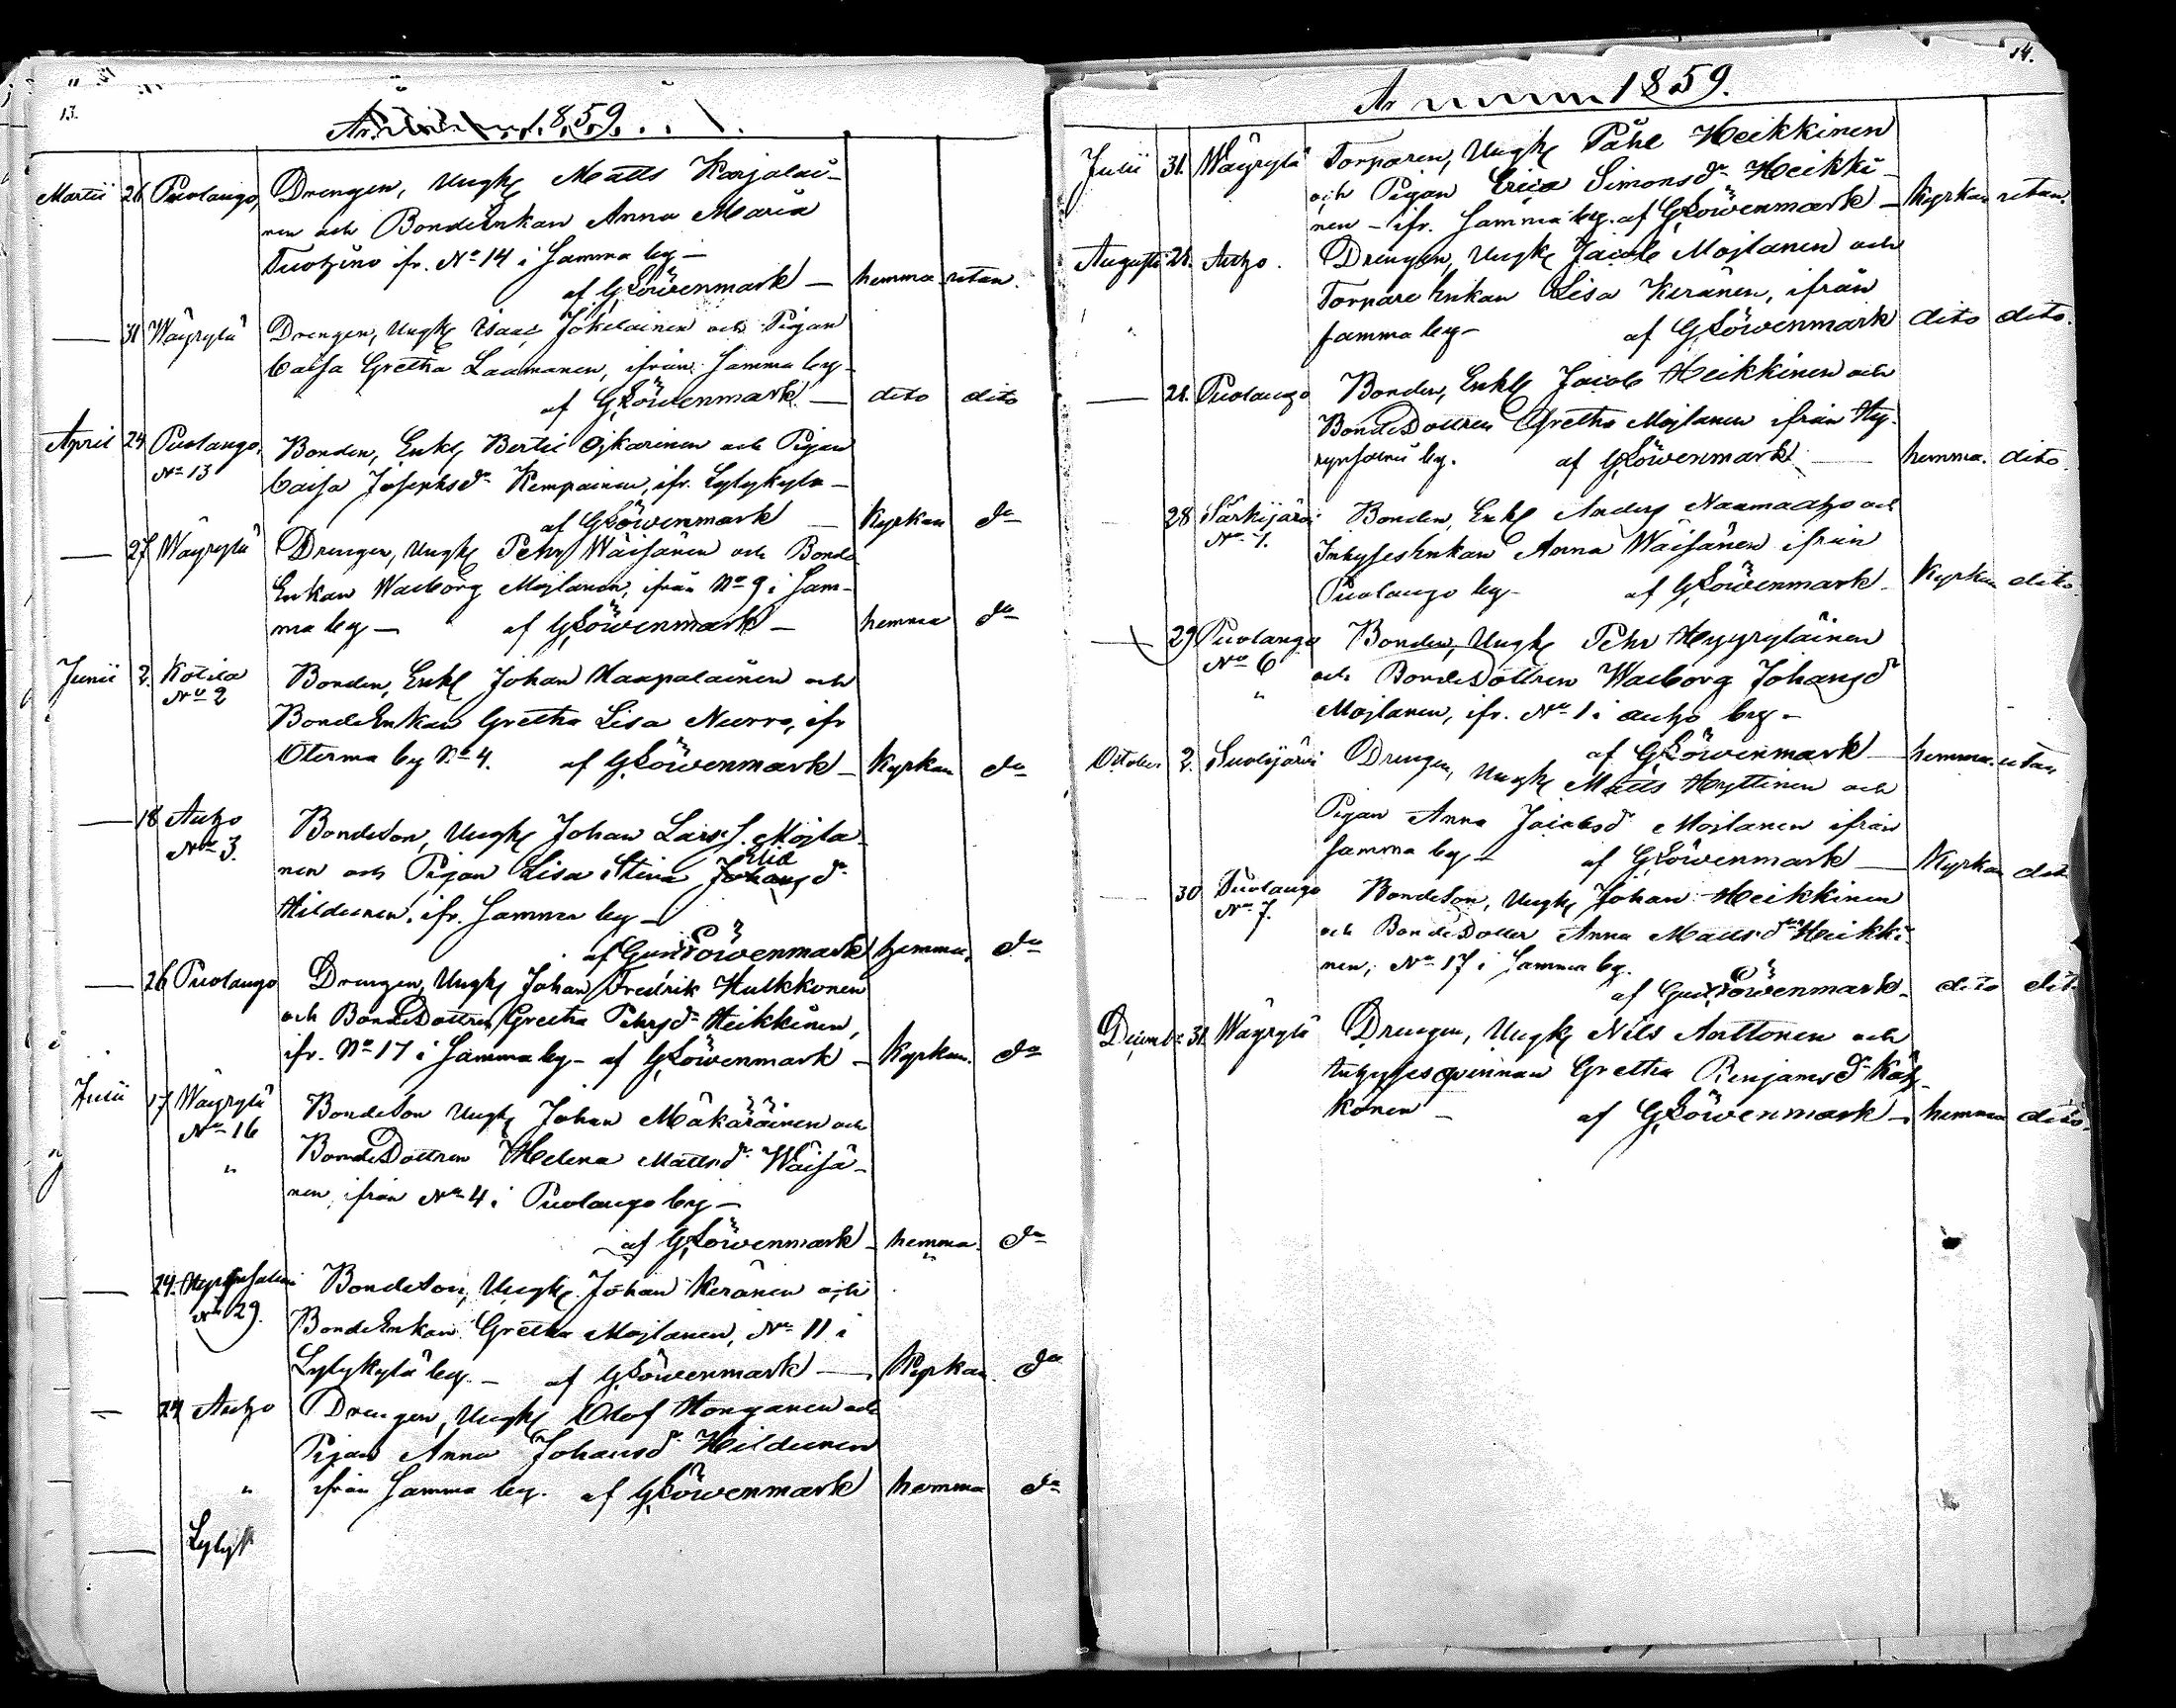 13.
År 1859.
Martii 26 Puolango, Drengen, Ungk Matts Karjalai-
nen och BondeEnkan Anna Maria
ifr. No 14 i Samma by-
af G Löwenmark - hemma utan.
— 31 Wäyrylä Drengen, Ungk Isaac Jokelainen och Pigan
Caisa Gretha Laamanen, ifrån Samma by-
af G Löwenmark - dito dito
April 24 Puolango, Bonden, Enkl Bertil Ojkarinen och Pigan
No 13 Caisa Josephsdr Kempainen, ifr. Lylykylä -
af G Löwenmark - Kyrkan do
— 27 Wäyrylä Drengen, Ungk Pehr Wäisänen och Bonde
Enkan Walborg Mojlanen, ifrån No 9 i Sam-
ma by - af G Löwenmark - hemma do
Junii 2. Kotila Bonden, Enkl Johan Haapalainen och
No 2 BondeEnkan Gretha Lisa Nurro, ifr
Oterma by No 4. af G Löwenmark - Kyrkan do
— 18 Auho Bondeson, Ungk Johan Lars S. Mojla-
No 3. nen och Pigan Lisa Stina Johansdr
Hildunen, ifr. Samma by -
af Gust Löwenmark hemma. do
— 26 Puolango Drengen, Ungk Johan Fredrik Hulkkonen
och BondeDottren Gretha Pehrsdr Heikkinen,
ifr. No 17 i Samma by - af G Löwenmark - Kyrkan. do
Julii 17 Wäyrylä Bondeson Ungk Johan Mäkäräinen och
No 16 BondeDottren Helena Mattsdr Wäisä-
" nen, ifrån No 4 i Puolango by -
af G Löwenmark - hemma. do
— 24. Hyrynsalmi Bondeson, Ungk Johan Keränen och
No 29. BondeEnkan Gretha Mojlanen, No 11 i
Lylykylä by. - af G Löwenmark - Kyrkan. do
— 24 Auho Drengen, Ungk Olof Honganen och
Pigan Anna Johansdr Hildunen
" ifrån Samma by. af G Löwenmark hemma do
— Lylyk
14.
År 1859.
Julii 31. Wäyrylä Torparen, Ungk Påhl Heikkinen
och Pigan Erica Simonsdr Heikki-
nen - ifr. Samma by. af G Löwenmark - Kyrkan utan.
Augusti 21. Auho. Drengen, Ungk Jacob Mojlanen och
Torpare Enkan Lisa Keränen, ifrån
Samma by - af G Löwenmark dito dito.
— 21. Puolango Bonden, Enkl Jacob Heikkinen och
BondeDottren Gretha Mojlanen ifrån Hy-
rynsalmi by. af G Löwenmark - hemma. dito.
28 Särkijärvi Bonden, Enkl Anders Naamaaho och
No 1. InhysesEnkan Anna Wäisänen ifrån
Puolango by - af G Löwenmark - Kyrkan dito
— 29 Puolango Bonden, Ungk Pehr Hyyryläinen
No 6 och BondeDottren Walborg Johansdr
" Mojlanen, ifr. No 1 i auho by -
af G Löwenmark - hemma. utan
October 2. Suolijärvi Drengen, Ungk Matts Hyttinen och
Pigan Anna Jacobsdr Mojlanen ifrån
Samma by - af G Löwenmark - Kyrkan dito
— 30 Puolango Bondeson, Ungk Johan Heikkinen
No 7. och BondeDotter Anna Mattsdr Heikki-
nen, No 17 i Samma by.
af Gust Löwenmark - dito dito
Decembr 31. Wäyrylä Drengen, Ungk Nils Anttonen och
Inhysesqvinnan Gretha Benjamsdr
konen - af G Löwenmark - hemma dito.